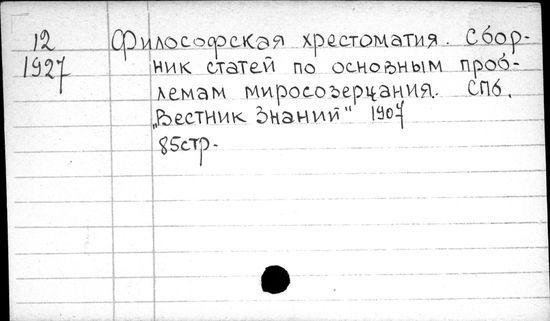 12 Философская хрестоматия. Сбор-
1927 ник статей по основным проб-
лемам миросозерцания. СПб.
„Вестник Знаний" 1907
85стр.